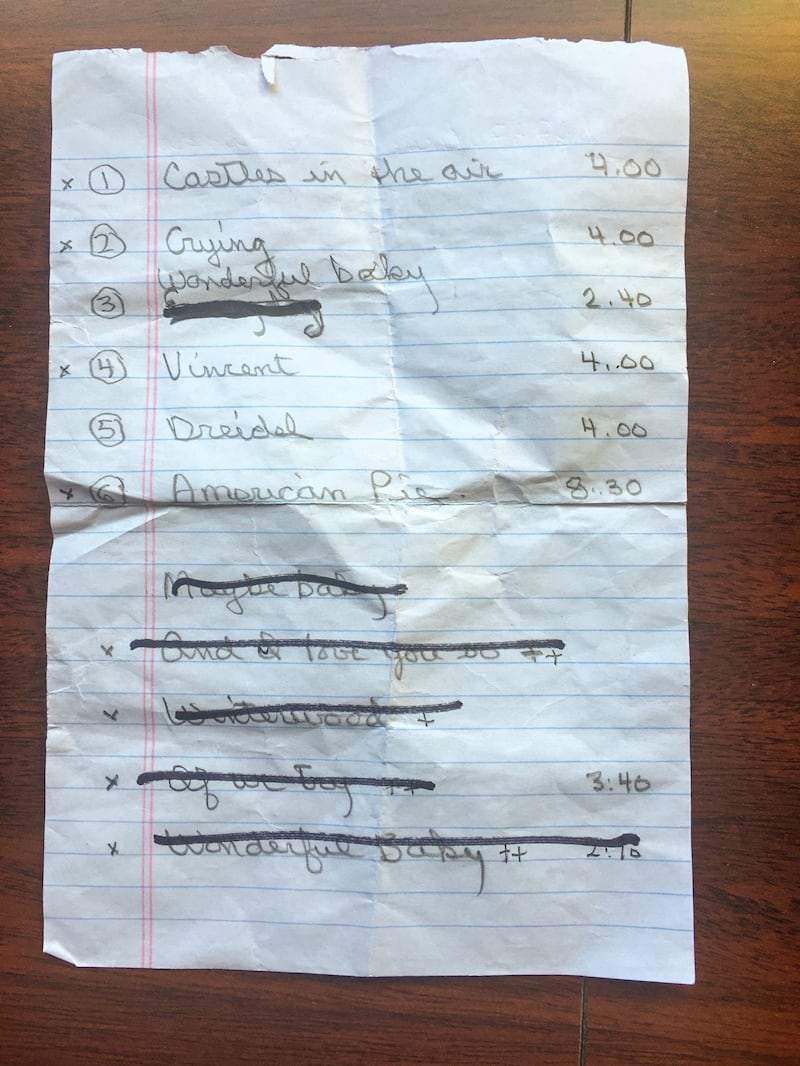 x ① Castles in the air 4.00
x ② Crying 4.00
Wonderful baby
③ 2.40
x ④ Vincent 4.00
⑤ Dreidel 4.00
x ⑥ American Pie. 8.30
Maybe baby
x And I love you so ++
x Winterwood +
x If we try ++ 3:40
x Wonderful Baby ++